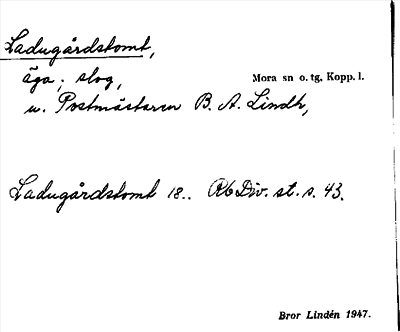 Ladugårdstomt,
äga; slog, Mora sn o. tg, Kopp. l.
u. Postmästaren B. A. Lindh,
Ladugårdstomt 18.. Rb Div. st. s. 43.
Bror Lindén 1947.